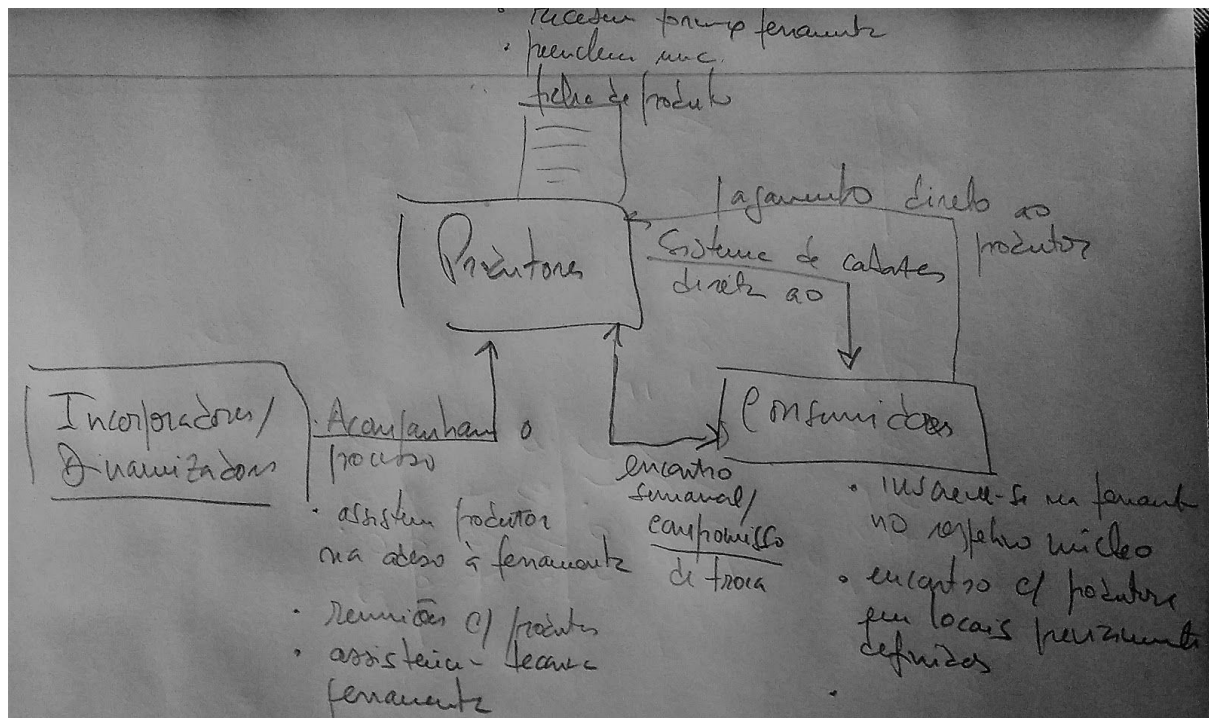 ferramenta
• preenchem uma
ficha de produto
Pagamento direto ao
produtor
Produtores
Sistema de cabazes
direto ao
Incorporadores/
Dinamizadores
• Acompanham o
processo
• assistem produtor
na adesão à ferramenta
• reuniões c/ produtores
• assistência técnica
ferramenta
encontro
semanal/
compromisso
de troca
Consumidores
• inscreve-se na ferramenta
no respetivo núcleo
• encontro c/ produtores
em locais previamente
definidos
•